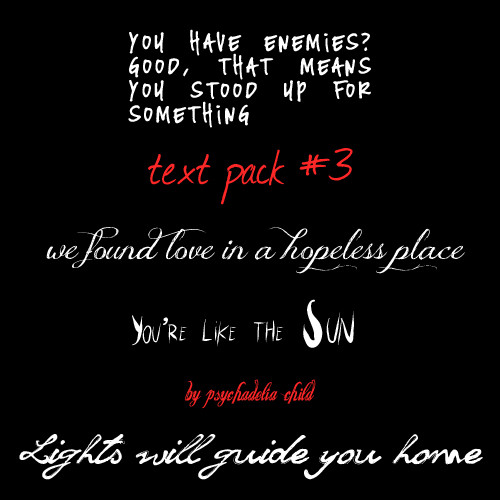 YOU HAVE ENEMIES?
GOOD, THAT MEANS
YOU STOOD UP FOR
SOMETHING
text pack #3
we found love in a hopeless place
YOU'RE LIKE THE SUN
by psychadelia child
Lights will guide you home